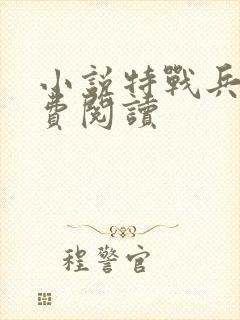 小說特戰兵
費閱讀
程警官